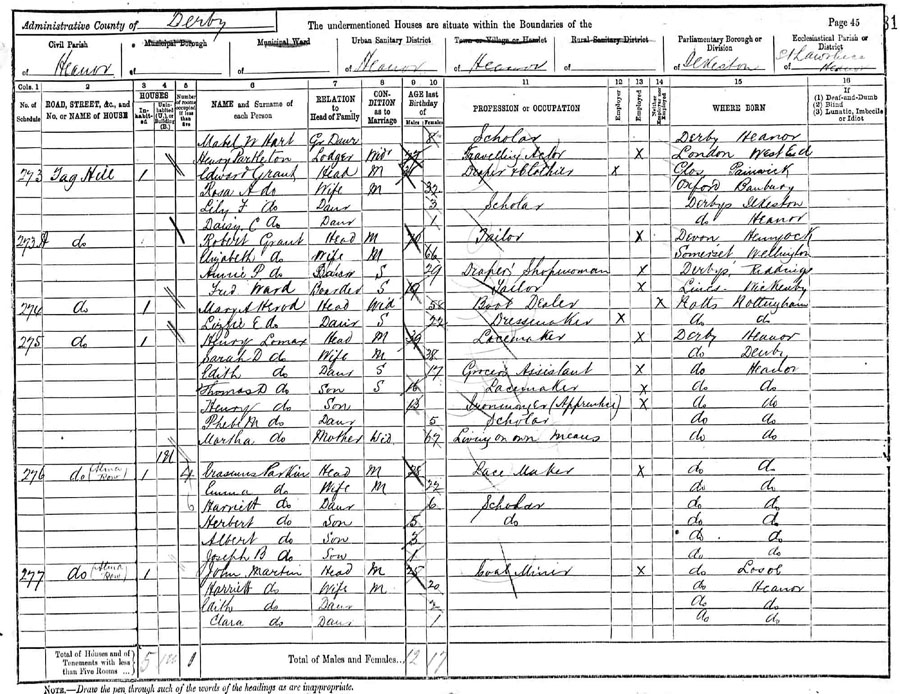 Administrative County of Derby The undermentioned Houses are situate within the Boundaries of the Page 45 81
Civil Parish Municipal Borough Municipal Ward Urban Sanitary District Town or Village or Hamlet Rural Sanitary District Parliamentary Borough or Division Ecclesiastical Parish or District
of Heanor of of of Heanor of Heanor of of Ilkeston of St Lawrence Heanor
Cols. 1 2 3 4 5 6 7 8 9 10 11 12 13 14 15 16
No. of Schedule ROAD, STREET, &c., and No. or NAME of HOUSE HOUSES Inhabited Uninhabited (U.), or Building (B.) Number of rooms occupied if less than five NAME and Surname of each Person RELATION to Head of Family CONDITION as to Marriage AGE last Birthday of Males Females PROFESSION or OCCUPATION Employer Employed Neither Employer nor Employed WHERE BORN If (1) Deaf-and-Dumb (2) Blind (3) Lunatic, Imbecile or Idiot
Mabel W Hart Gr Daur 8 Scholar Derby Heanor
Henry Lodger Widr Travelling Actor X London West End
273 Tag Hill 1 Edward Grant Head M Draper & Clothier X Glos Painswick
Rosa A do Wife M 32 Oxford Banbury
Lily F do Daur 3 Scholar Derbys Ilkeston
Daisy C do Daur 1 do Heanor
273A do Robert Grant Head M 70 Tailor X Devon Hemyock
Elizabeth do Wife M 66 Somerset Wellington
Annie P do Daur S 29 Drapers Shopwoman X Derbys Riddings
Fred Ward Boarder S 19 Tailor X Lincs Wickenby
274 do 1 Mary A Herod Head Wid 58 Boot Dealer X Notts Nottingham
Lizzie E do Daur S 22 Dressmaker X do do
275 do 1 Henry Lomax Head M 39 Lacemaker X Derby Heanor
Sarah D do Wife M 38 do Derby
Edith do Daur S 17 Grocers Assistant X do Heanor
Thomas D do Son S 16 Lacemaker X do do
Henry do Son 13 Ironmonger (Apprentice) X do do
Phebe M do Daur 5 Scholar do do
Martha do Mother Wid 67 Living on own means do do
276 do (Alma Row) 1 4 Erasmus Parkin Head M 28 Lace Maker X do do
Emma do Wife M 22 do do
Harriett do Daur 6 Scholar do do
Herbert do Son 5 do do do
Albert do Son 3 do do
Joseph B do Son 1 do do
277 do (Alma Row) 1 John Martin Head M 25 Coal Miner X do Loscoe
Harriett do Wife M 20 do Heanor
Edith do Daur 2 do do
Clara do Daur 1 do do
Total of Houses and of Tenements with less than Five Rooms ... 5 1 Total of Males and Females... 12 17
NOTE.—Draw the pen through such of the words of the headings as are inappropriate.